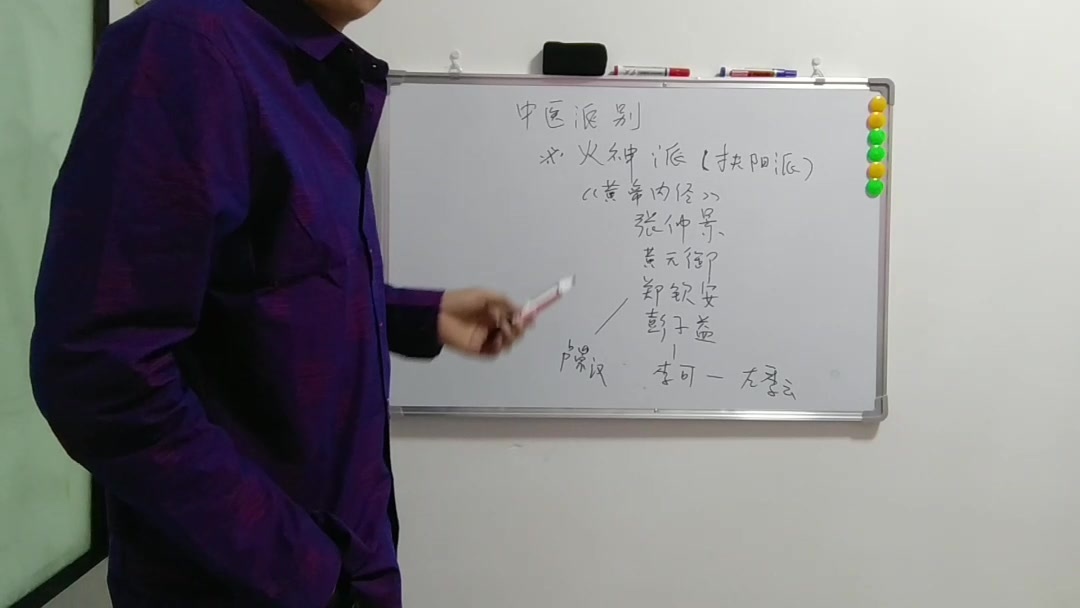 中医派别
※ 火神派（扶阳派）
《黄帝内径》
张仲景
黄元御
郑钦安
彭子益
卢崇汉 李可 — 左季云